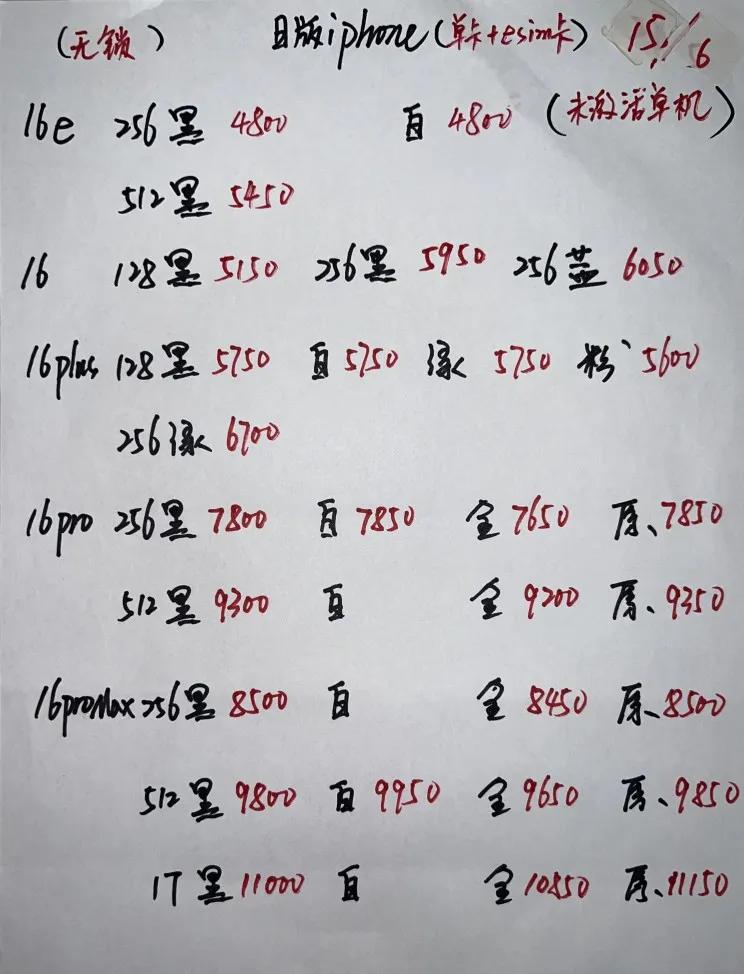 (无锁) 日版iphone(单卡+esim卡) 15/6
16e 256黑 4800 白 4800 (未激活单机)
512黑 5450
16 128黑 5150 256黑 5950 256蓝 6050
16plus 128黑 5750 白 5750 绿 5750 粉 5600
256绿 6700
16pro 256黑 7800 白 7850 金 7650 原、7850
512黑 9300 白 金 9200 原、9350
16proMax 256黑 8500 白 金 8450 原、8500
512黑 9800 白 9950 金 9650 原、9850
1T黑 11000 白 金 10850 原、11150